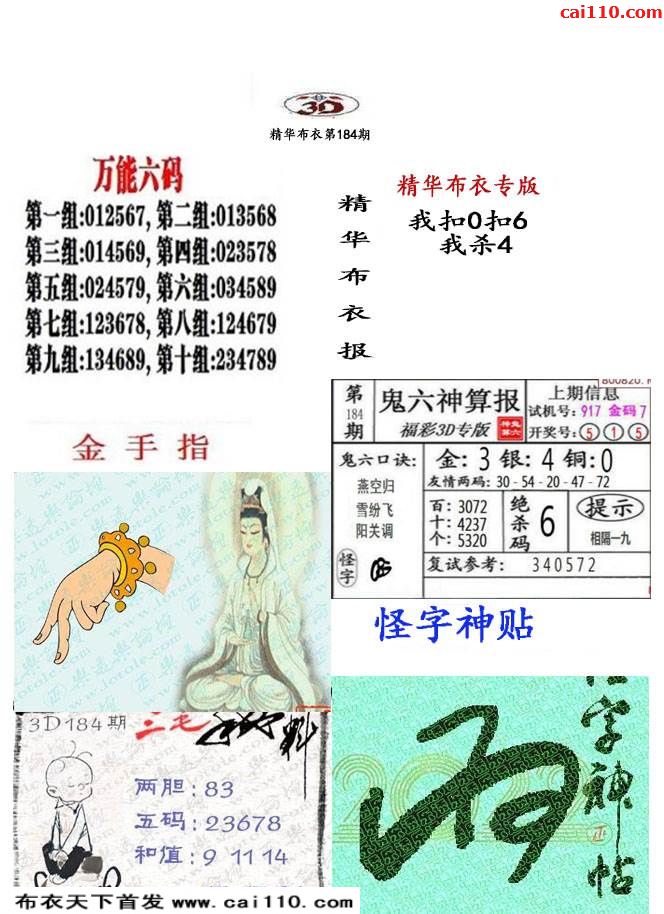 cai110.com
3D
精华布衣第184期
万能六码
第一组:012567, 第二组:013568
第三组:014569, 第四组:023578
第五组:024579, 第六组:034589
第七组:123678, 第八组:124679
第九组:134689, 第十组:234789
金手指
精华布衣报
精华布衣专版
我扣0扣6
我杀4
第184期
鬼六神算报
福彩3D专版
上期信息
试机号: 917 金码 7
开奖号: 5 1 5
鬼六口诀:
燕空归
雪纷飞
阳关调
怪字
金: 3 银: 4 铜: 0
友情两码: 30 - 54 - 20 - 47 - 72
百: 3072
十: 4237
个: 5320
绝杀码
6
提示
相隔一九
复试参考: 340572
怪字神贴
3D184期
三毛
两胆: 83
五码: 23678
和值: 9 11 14
字神帖
布衣天下首发 www.cai110.com